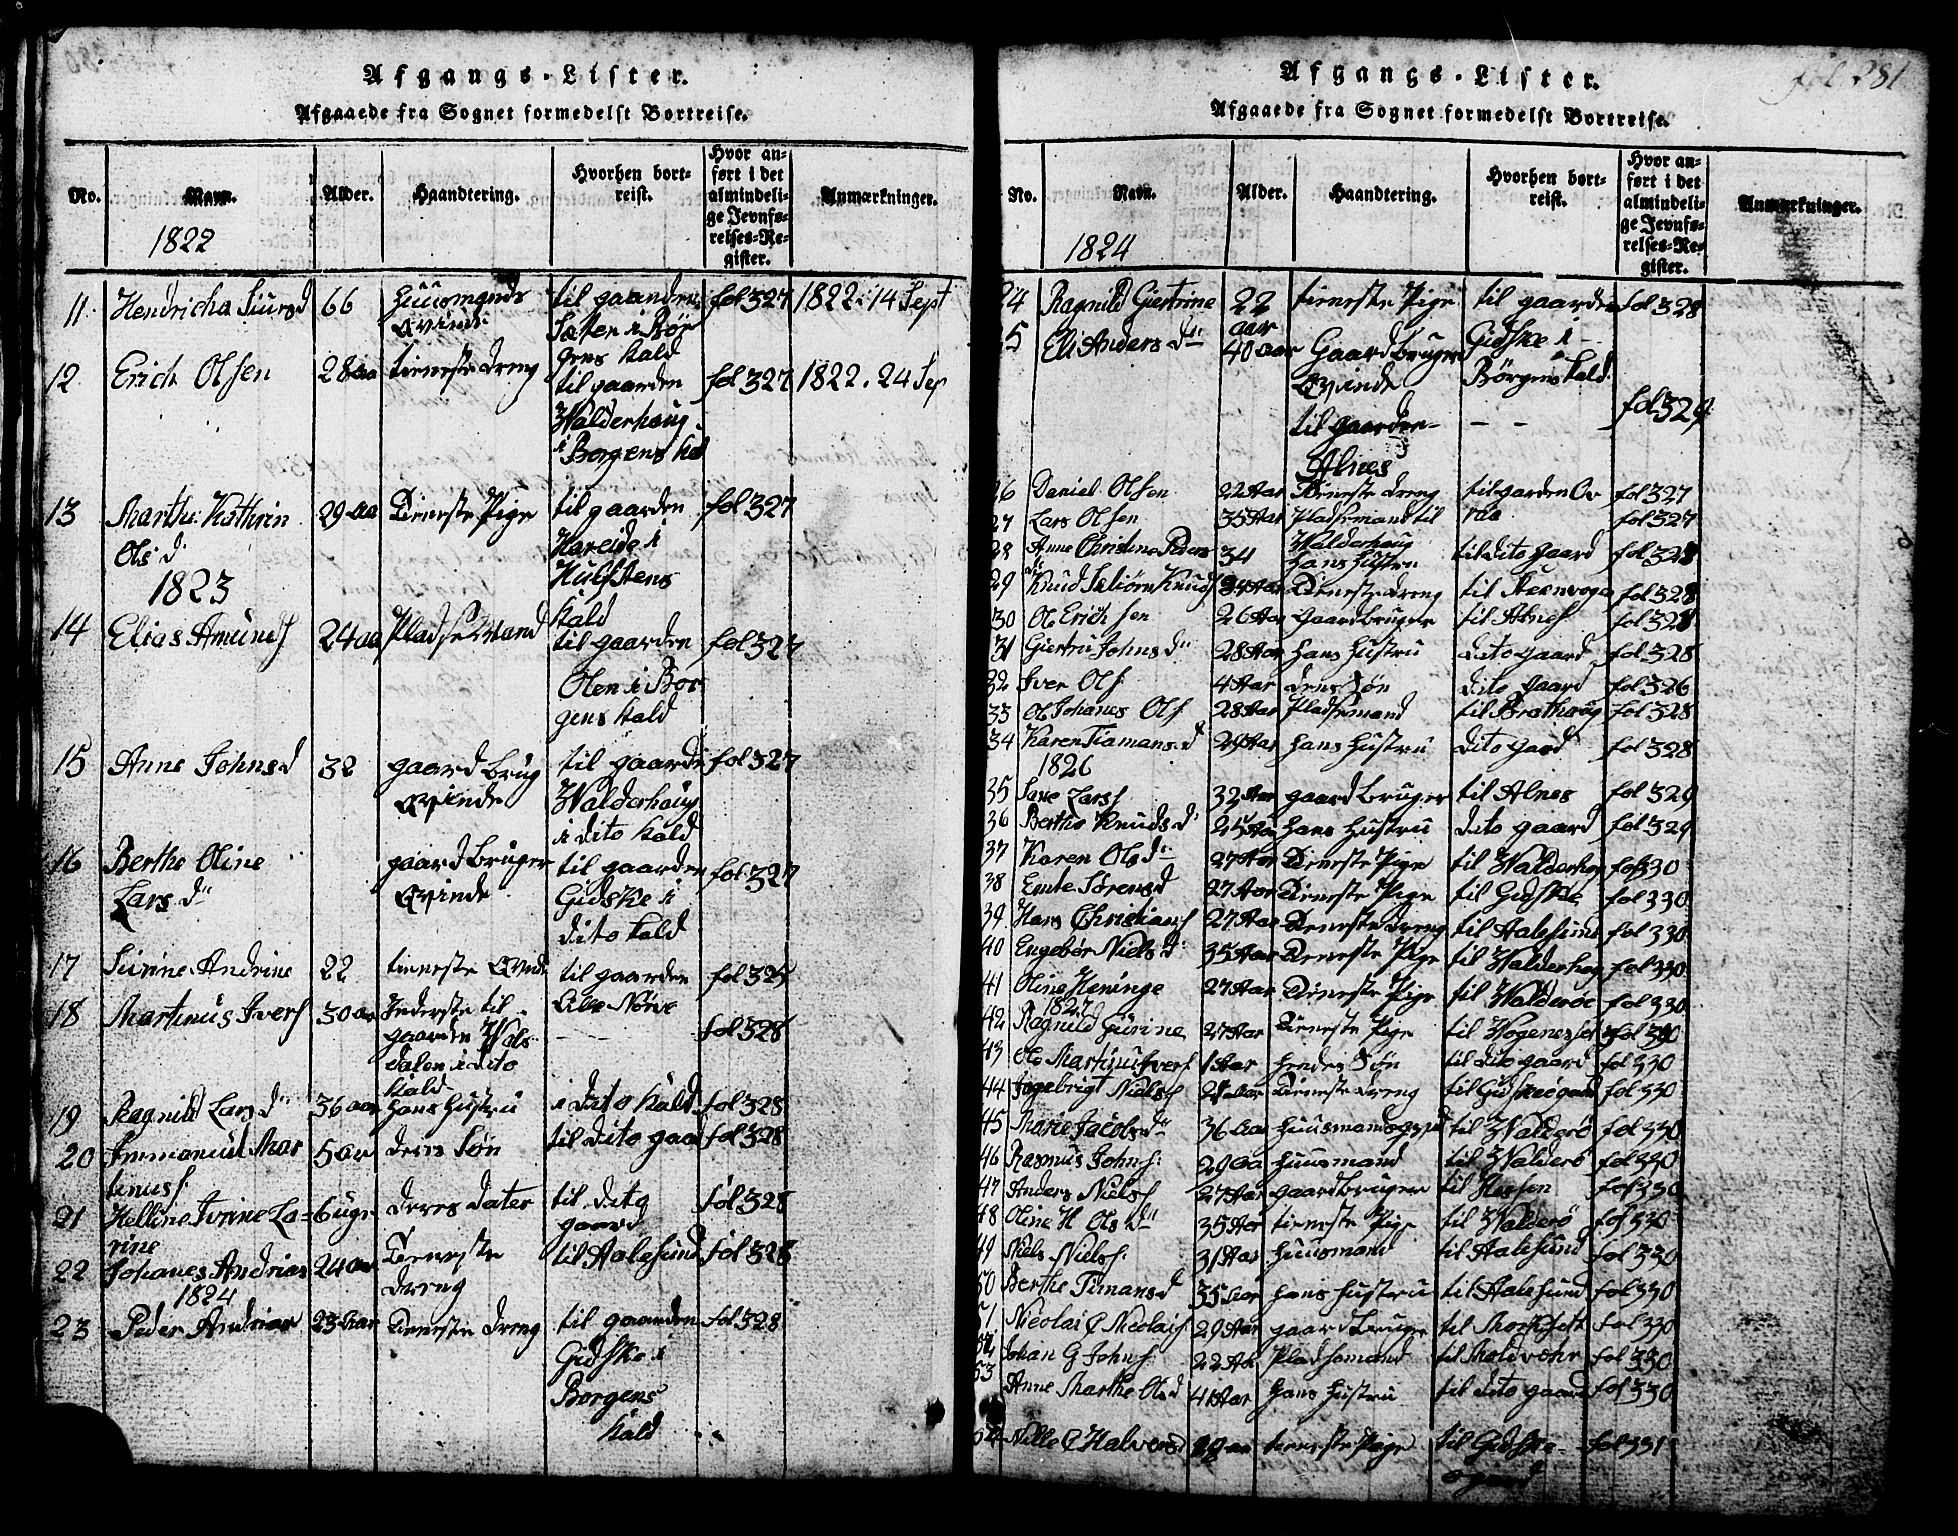 Afgangs-Lister.
Afgaaede fra Sognet formedelst Bortreise.
No. Navn. Alder. Haandtering. Hvorhen bort-reist. Hvor an-ført i det almindeli-ge Jevnfø-relses-Re-gister. Anmærkninger.
1822
11. Hendricha Siursd 66 Huusmands Qvinde til gaarden Sæten i Bör gens kald fol 327 1822: 14 Sept
12 Erich Olsen 28 aa tieneste dreng til gaarden Walderhoug i Borgens kal fol 327 1822. 24 Sep
13 Marthe Kathrin Ols d. 29 aa Tieneste Pige til gaarden Hareide i Hulfstens kald fol 327
1823
14 Elias Amunds 24 aa Pladsemand til gaarden Olen i Bor gens kald fol 327
15 Anne Johnsd 32 gaardbrug Qvinde til gaarde Walderhoug i dito kald fol 327
16 Berthe Oline Lars d gaardbruger Qvinde til gaarden Gidske i dito kald fol 327
17 Sirine Andrine 22 tieneste Qvinde til gaarden Nörve fol 325
18 Martinus Ivers 30 aa Inderste til gaarden i dito kald - - fol 328
19 Ragnild Lars d 36 aar hans hustru i dito kald fol 328
20 Immanuel Mar tinus 5 aar deres Sön til dito gaad fol 328
21 Helline Ivrine La-rine 6 uger deres dater til dito gaard fol 328
22 Johanes Andrias 24 aar Tieneste dreng til Aalesund fol 328
1824
23 Peder Andrias 23 aar Tieneste dreng til gaarden Gidske i Borgens kald fol 328
Afgangs-Lister. fol 381
Afgaaede fra Sognet formedelst Bortreise.
No. Navn. Alder. Haandtering. Hvorhen bort-reist. Hvor an-ført i det almindeli-ge Jevnfø-relses-Re-gister. Anmærkninger.
1824
24 Ragnild Giertrine 22 aar tieneste Pige til gaarden Gidske i Börgens kald fol 328
25 Eli Anders d 40 aar Gaardbruger Qvinde til gaarden Alnes - - fol 329
26 Daniel Olsen 22 Aar Tieneste dreng til garden Ov raa fol 327
27 Lars Olsen 35 Aar Pladsemand til Walderhaug fol 327
28 Anne Christine Peders d 34 hans hustru til dito gaard fol 328
29 Knud Knuds 24 Aar Tieneste dreng til fol 328
30 Ol Erichsen 26 Aar gaardbruger til Alnes fol 328
31 Giertru Johns d 28 Aar hans hustru dito gaard fol 328
32 Iver Ols 4 Aar deres Sön dito gaard fol 326
33 Ol Johanes Ols 28 Aar Pladsemand til Brathoug fol 328
34 Karen Timans d 29 Aar hans hustru dito gaard fol 328
1826
35 Lars 32 Aar gaardbruger til Alnes fol 329
36 Berthe Knuds d 25 Aar hans hustru dito gaard fol 329
37 Karen Ols d 27 Aar Tieneste Pige til Walderhog fol 330
38 Sörens d 27 Aar Tieneste Pige til Gidske fol 330
39 Hans Christians 27 Aar Tieneste dreng til Aalesund fol 330
40 Engebör Niels d 35 Aar Tieneste Pige til Walderhog fol 330
41 Oline Heninge 27 Aar Tieneste Pige til Walderöe fol 330
1827
42 Ragnild Gurine 27 Aar Tieneste Pige til fol 330
43 Ole Martinus Ivers 1 Aar hendes Sön til dito gaard fol 330
44 Ingebrigt Niels Tieneste dreng til Gidske gaard fol 330
45 Marie Jacobs d 36 Aar til Walderö fol 330
46 Rasmus Johns 29 Aa huusmand til Walderö fol 330
47 Anders Niels 27 Aar gaardbruger til Hessen fol 330
48 Oline H Ols d 35 Aar tieneste Pige til Walderö fol 330
49 Niels Niels 31 Aar huusmand til Aalesund fol 330
50 Berthe Timans d 35 Aar hans hustru til Aalesund fol 330
51 Nicolai C Nicolais 29 Aar gaardbruger til fol 330
52 Johan G Johns 22 Aar Pladsemand til Moldvær fol 330
53 Anne Marthe Ols d 41 Aar hans hustru til dito gaard fol 330
54 Nille C Halvors d tieneste Pige til Gidske gaard fol 331